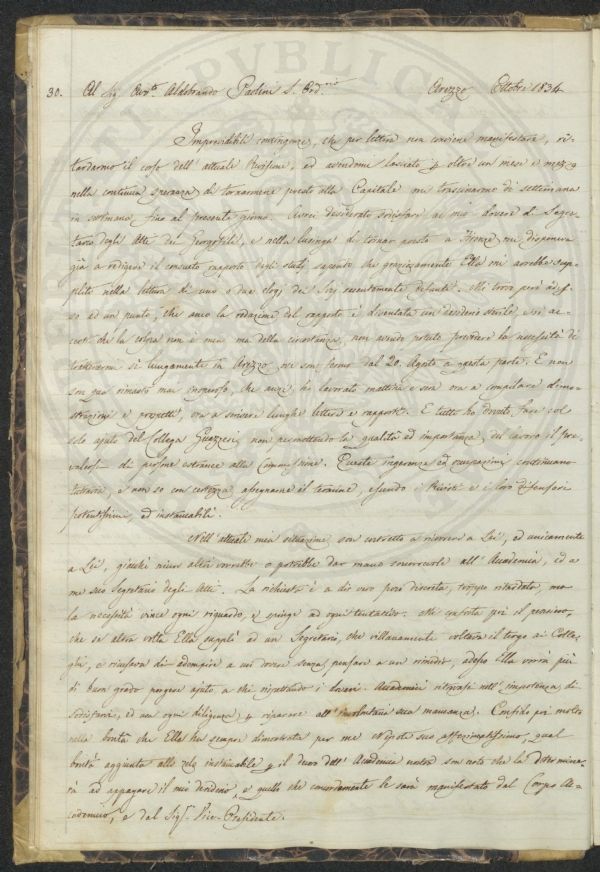 30. Al Sig. Avv.to Aldobrando Paolini S. Ord.rio Arezzo Ottobre 1834
Improvidibili contingenze, che per lettere non conviene manifestare, ri-
tardarono il corso dell' attuale Revisione, ed avendomi lasciato p oltre un mese e mezzo
nella continua speranza di tornarmene presto alla Capitale mi trascinarono di settimana
in settimana fino al presente giorno. Avrei desiderato sodisfare al mio dovere di Segre-
tario degli Atti dei Georgofili, e nella lusinga di tornar presto a Firenze mi disponeva
già a redigere il consueto rapporto degli studj sapendo che graziosamente Ella mi avrebbe sup-
plito nella lettura di uno o due elogj dei Socj recentemente defunti. Mi trovo però ades-
so ad un punto, che anco la redazione del rapporto è diventata un desiderio sterile; ed ac-
certi che la colpa non è mia ma della circostanza, non avendo potuto prevedere la necessità di
trattenermi sì lungamente in Arezzo ove son fermo dal 20. Agosto a questa parte. E non
son già rimasto mai inoperoso, che anzi ho lavorato mattina e sera ora a compilare dimo-
strazioni e progetti, ora a scrivere lunghe lettere e rapporti. E tutto ho dovuto fare col
solo ajuto del Collega Guazzesi, non permettendo la qualità ed importanza del lavoro il pre-
valersi di persone estranee alla Commissione. Queste ingerenze ed occupazioni continuano
tuttavia, e non so con certezza assegnarne il termine, essendo i Rivisti e i loro difensori
potentissimi, ed instancabili.
Nell' attuale mia situazione son costretto a ricorrere a Lei, ed unicamente
a Lei, giacchè niun altri vorrebbe o potrebbe dar mano soccorrevole all' Accademia, ed a
me suo Segretario degli Atti. La richiesta è a dir vero poco discreta, troppo ritardata, ma
la necessità vince ogni riguardo, e spinge ad ogni tentativo. Mi conforta poi il pensiero,
che se altra volta Ella supplì ad un Segretario, che villanamente voltava il tergo ai Colle-
ghi, e ricusava di adempire a sui doveri senza pensare a un rimedio, adesso Ella vorrà più
di buon grado porgere ajuto a chi rispettando i doveri Accademici ritrovasi nell' impotenza di
sodisfarvi, ed usa ogni diligenza p riparare all' involontaria sua mancanza. Confido poi molto
nella bontà che Ella ha sempre dimostrata per me Nipote suo affezionatissimo, qual
bontà aggiunta allo zelo instancabile p il decoro dell' Accademia nostra son certo che La determine-
rà ad appagare il mio desiderio, e quello che concordemente le sarà manifestato dal Corpo Ac-
cademico, e dal Sig.r Vice-Presidente.